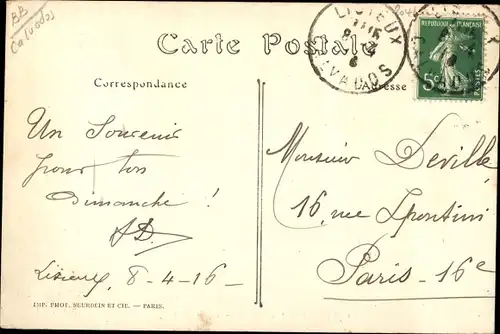 BB
Calvados
Carte Postale
Correspondance
Adresse
LISIEUX
CALVADOS
REPUBLIQUE FRANÇAISE
5c
POSTES
Un Souvenir
pour ton
Dimanche !
Lisieux 8-4-16-
Monsieur Deville
16, rue Spontini
Paris-16e
IMP. PHOT. NEURDEIN ET CIE. — PARIS.